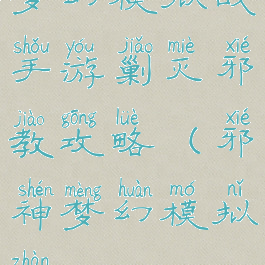 shǒu yóu jiǎo miè xié
手游剿灭邪
jiào gōng luè xié
教攻略（邪
shén mèng huàn mó nǐ
神梦幻模拟
zhàn